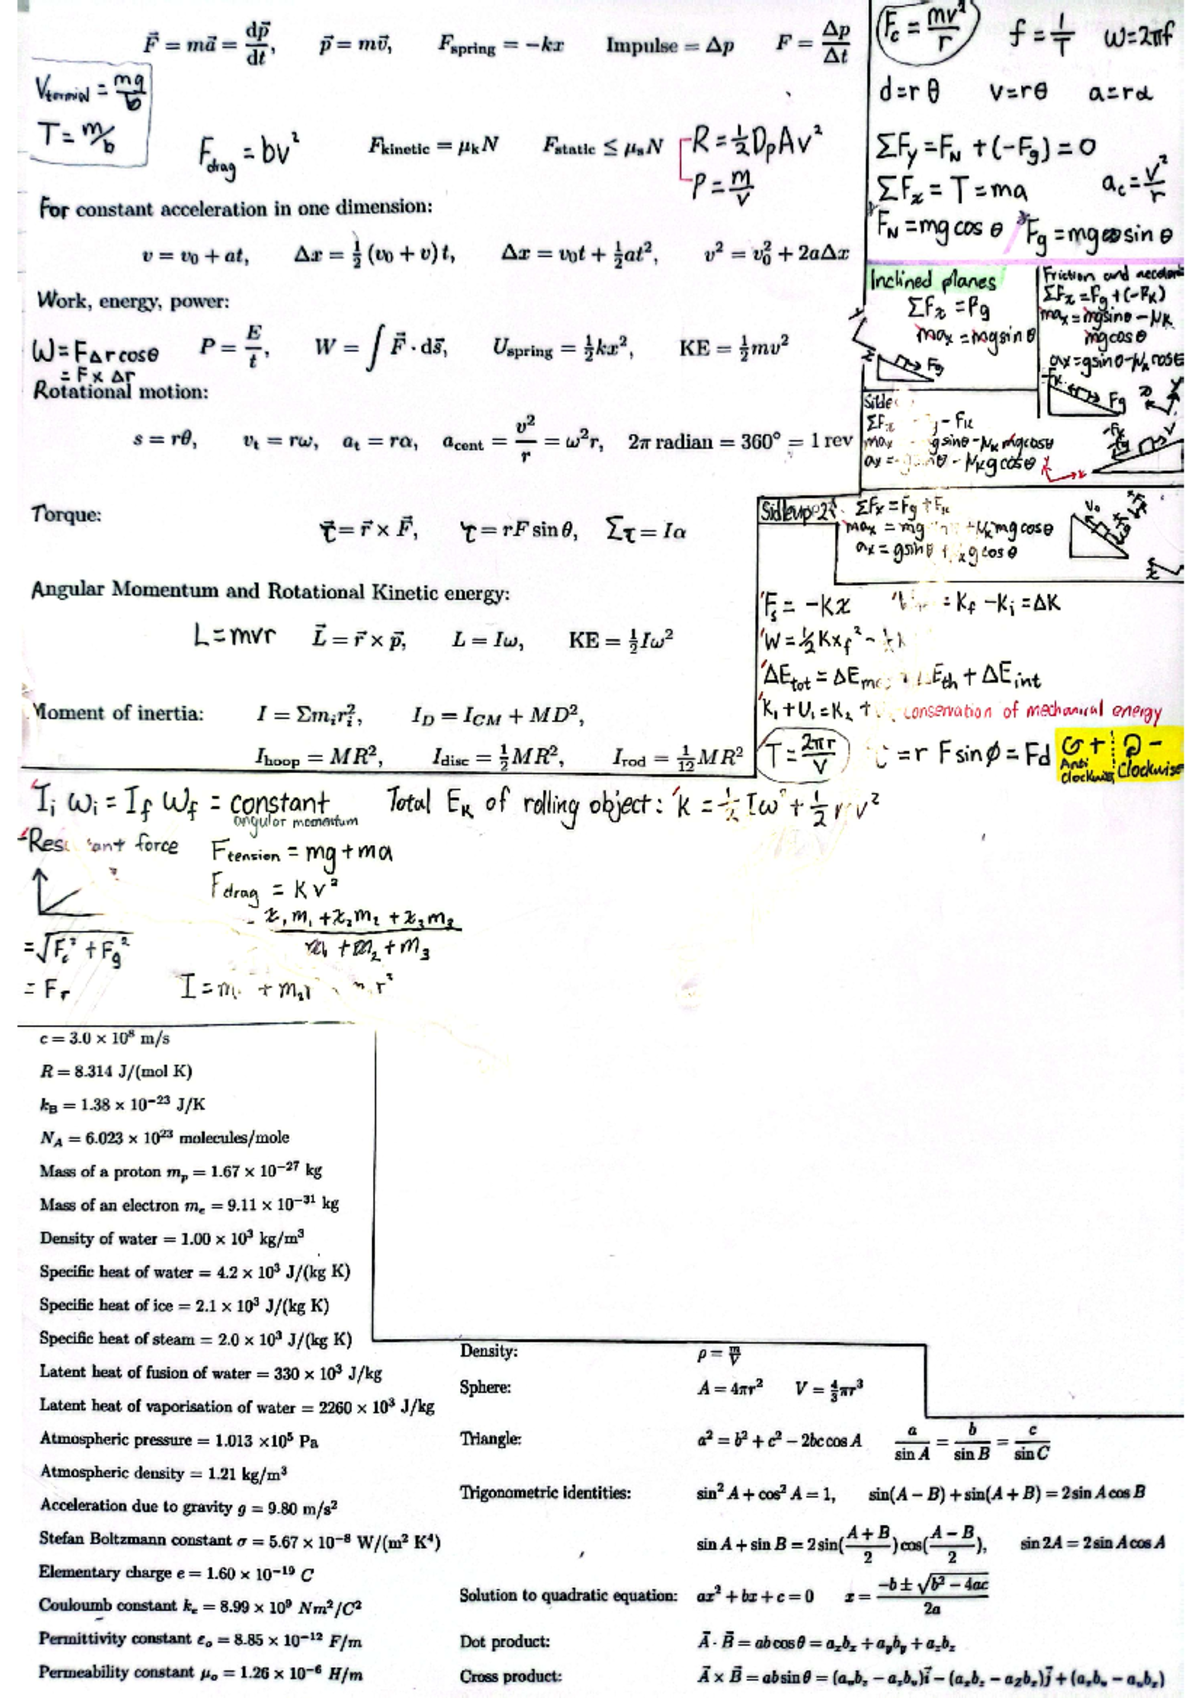 F⃗ = ma⃗ = dp⃗/dt, p⃗ = mv⃗, F_spring = −kx Impulse = Δp F = Δp/Δt
F_c = mv²/r f = 1/T ω = 2πf
V_terminal = mg/b
T = m/b
d = rθ v = rθ a = rα
F_drag = bv² F_kinetic = μ_k N F_static ≤ μ_s N R = ½DρAv²
P = m/v
ΣF_y = F_N + (−F_g) = 0
ΣF_x = T = ma a_c = v²/r
F_N = mg cos θ F_g = mg sin θ
For constant acceleration in one dimension:
v = v₀ + at, Δx = ½(v₀ + v)t, Δx = v₀t + ½at², v² = v₀² + 2aΔx
Inclined planes
ΣF_x = F_g
ma_x = mg sin θ
F_g
Friction and
ΣF_x = F_g + (−F_k)
ma_x = mg sin θ − μ_k
mg cos θ
a_x = g sin θ − μ_k cos θ
F_g
Work, energy, power:
W = FΔr cos θ
= F × Δr
P = E/t, W = ∫ F⃗ · ds⃗, U_spring = ½kx², KE = ½mv²
Rotational motion:
s = rθ, v_t = rω, a_t = rα, a_cent = v²/r = ω²r, 2π radian = 360° = 1 rev
ΣF − F_k
ma_x g sin θ − μ_k mg cos θ
− μ_k g cos θ
Torque:
τ⃗ = r⃗ × F⃗, τ = rF sin θ, Στ = Iα
ΣF_x = F_g + F_k
ma_x = mg + μ_k mg cos θ
a_x = g sin θ + g cos θ
V₀
Angular Momentum and Rotational Kinetic energy:
L = mvr L⃗ = r⃗ × p⃗, L = Iω, KE = ½Iω²
F_s = −kx = K_f − K_i = ΔK
W = ½Kx_f² −
ΔE_tot = ΔE E_th + ΔE_int
K₁ + U₁ = K₂ + conservation of mechanical energy
T = 2πr/v = r F sin ø = Fd
+ Anti clockwise − Clockwise
Moment of inertia: I = Σm_i r_i², I_D = I_CM + MD²,
I_hoop = MR², I_disc = ½MR², I_rod = 1/12 MR²
I_i ω_i = I_f ω_f = constant
angular momentum
Total E_k of rolling object: K = ½Iω² + ½ v²
force
F_tension = mg + ma
F_drag = Kv²
x₁m₁ + x₂m₂ + x₃m₃
m₁ + m₂ + m₃
= √F_c² + F_g²
= F_r
I = m + m₂r r²
c = 3.0 × 10⁸ m/s
R = 8.314 J/(mol K)
k_B = 1.38 × 10⁻²³ J/K
N_A = 6.023 × 10²³ molecules/mole
Mass of a proton m_p = 1.67 × 10⁻²⁷ kg
Mass of an electron m_e = 9.11 × 10⁻³¹ kg
Density of water = 1.00 × 10³ kg/m³
Specific heat of water = 4.2 × 10³ J/(kg K)
Specific heat of ice = 2.1 × 10³ J/(kg K)
Specific heat of steam = 2.0 × 10³ J/(kg K)
Latent heat of fusion of water = 330 × 10³ J/kg
Latent heat of vaporisation of water = 2260 × 10³ J/kg
Atmospheric pressure = 1.013 ×10⁵ Pa
Atmospheric density = 1.21 kg/m³
Acceleration due to gravity g = 9.80 m/s²
Stefan Boltzmann constant σ = 5.67 × 10⁻⁸ W/(m² K⁴)
Elementary charge e = 1.60 × 10⁻¹⁹ C
Couloumb constant k_e = 8.99 × 10⁹ Nm²/C²
Permittivity constant ε₀ = 8.85 × 10⁻¹² F/m
Permeability constant μ₀ = 1.26 × 10⁻⁶ H/m
Density: ρ = m/V
Sphere: A = 4πr² V = 4/3πr³
Triangle: a² = b² + c² − 2bc cos A a/sin A = b/sin B = c/sin C
Trigonometric identities: sin² A + cos² A = 1, sin(A − B) + sin(A + B) = 2 sin A cos B
sin A + sin B = 2 sin((A + B)/2) cos((A − B)/2), sin 2A = 2 sin A cos A
Solution to quadratic equation: ax² + bx + c = 0 x = (−b ± √(b² − 4ac))/2a
Dot product: A⃗ · B⃗ = ab cos θ = a_x b_x + a_y b_y + a_z b_z
Cross product: A⃗ × B⃗ = ab sin θ = (a_y b_z − a_z b_y)i⃗ − (a_x b_z − a_z b_x)j⃗ + (a_x b_y − a_y b_x)